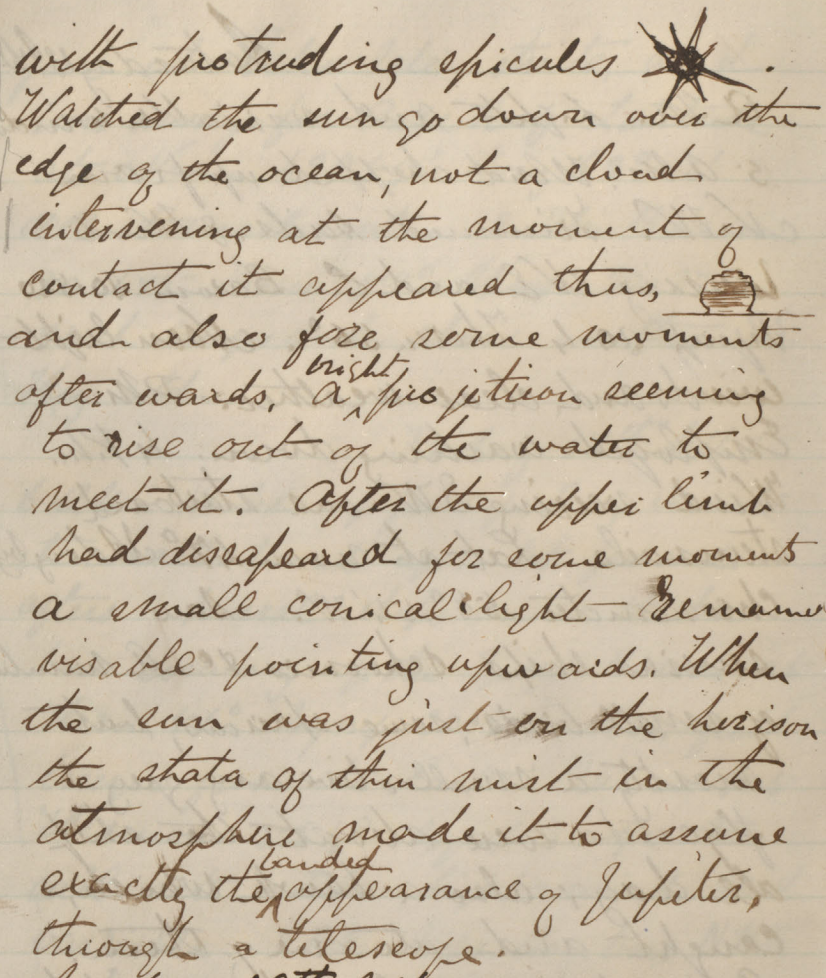 with protruding spicules .
Watched the sun go down over the
edge of the ocean, not a cloud
intervening at the moment of
contact it appeared thus,
and also fore some moments
bright
after wards. a projetion seeming
to rise out of the water to
meet it. After the upper limb
had dissapeared for some moments
a small conical light remaine
visable pointing upwards. When
the sun was just on the horison
the strata of thin mist in the
atmosphere made it to assume
banded
exactly the appearance of Jupiter,
through a telescope.